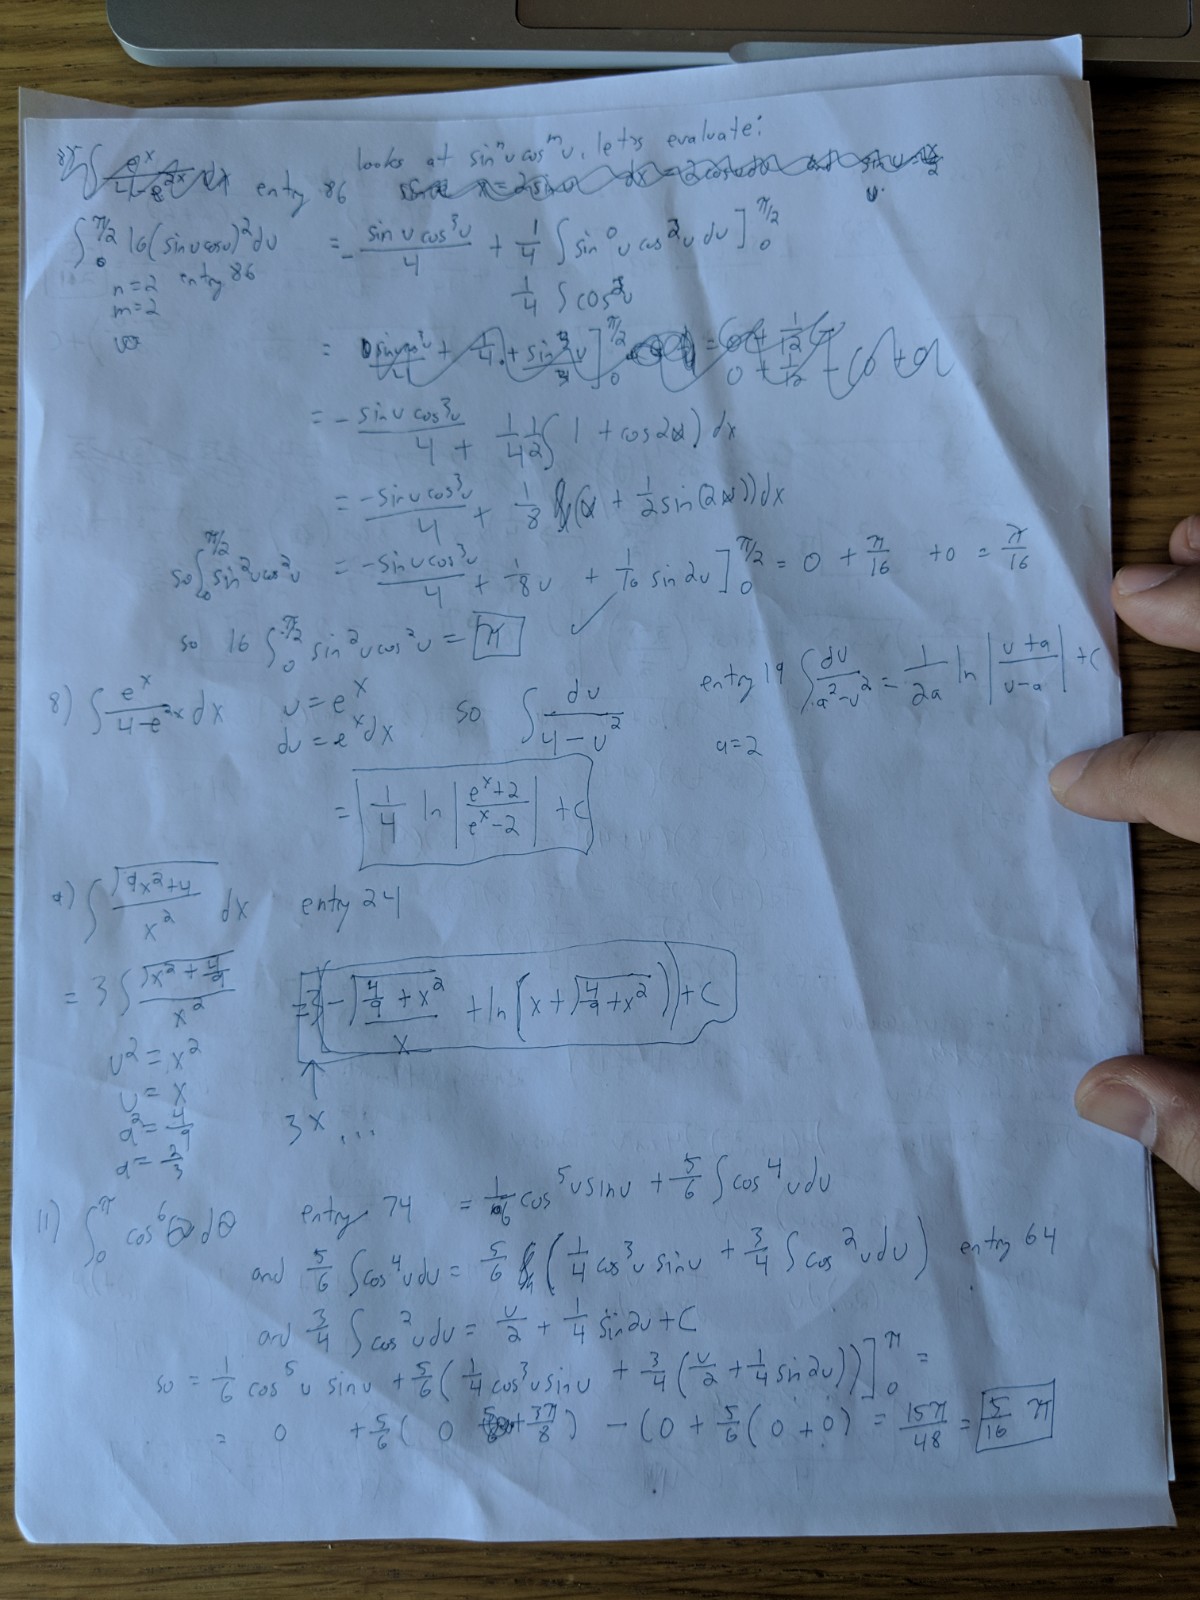 looks at sinⁿu cosᵐu, let's evaluate:
8) ∫ eˣ/(4-e²ˣ) dx entry 86
∫₀^(π/2) 16(sinucosu)²du = -(sin u cos³u)/4 + 1/4 ∫ sin⁰u cos²u du]₀^(π/2)
n=2 entry 86
m=2
1/4 ∫ cos²u
= -(sin u cos³u)/4 + 1/4 1/2 ∫ 1 + cos2u) dx
= -(sin u cos³u)/4 + 1/8 (u + 1/2 sin(2u))dx
so ∫₀^(π/2) sin²u cos²u = -(sin u cos³u)/4 + 1/8 u + 1/16 sin 2u]₀^(π/2) = 0 + π/16 + 0 = π/16
so 16 ∫₀^(π/2) sin²u cos²u = π ✓
8) ∫ eˣ/(4-e²ˣ) dx u = eˣ so ∫ du/(4-u²) entry 19 ∫ du/(a²-u²) = 1/2a ln |(u+a)/(u-a)| + C
du = eˣdx a=2
= 1/4 ln |(eˣ+2)/(eˣ-2)| + C
9) ∫ √(9x²+4)/x² dx entry 24
= 3 ∫ √(x²+4/9)/x² = 3(-√(4/9+x²)/x + ln(x+√(4/9+x²))) + C
u² = x²
u = x
a² = 4/9
a = 2/3
↑
3x...
11) ∫₀^π cos⁶θ dθ entry 74 = 1/6 cos⁵u sinu + 5/6 ∫ cos⁴u du
and 5/6 ∫ cos⁴u du = 5/6 (1/4 cos³u sinu + 3/4 ∫ cos²u du) entry 64
and 3/4 ∫ cos²u du = u/2 + 1/4 sin2u + C
so = 1/6 cos⁵u sinu + 5/6(1/4 cos³u sinu + 3/4(u/2 + 1/4 sin2u))]₀^π =
= 0 + 5/6(0 + 3π/8) - (0 + 5/6(0+0) = 15π/48 = 5/16 π